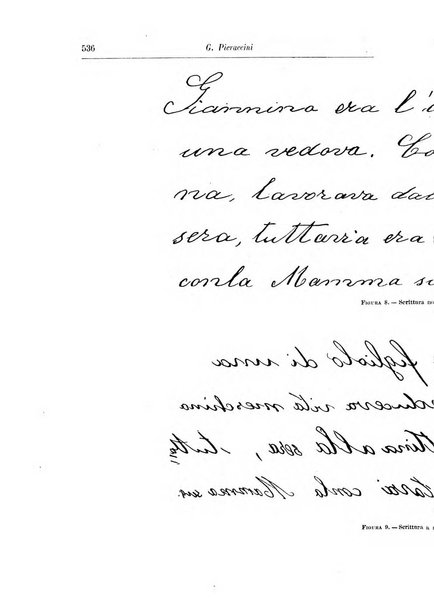 536 G. Pieraccini
Giannino era l'i
una vedova. Co
na, lavorava da
sera, tuttavia era
con la Mamma s
FIGURA 8. — Scrittura no
figliolo di una
duceva vita meschina
ttina alla sera, tutta
con la Mamma su
FIGURA 9. — Scrittura a s